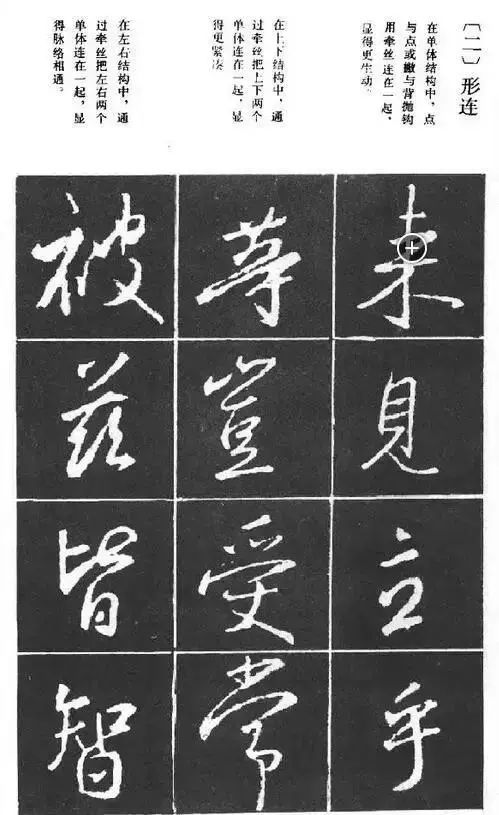 〔二〕形连
在单体结构中，点
与点或撇与背抛钩
用牵丝连在一起，
显得更生动。
在上下结构中，通
过牵丝把上下两个
单体连在一起，显
得更紧凑
在左右结构中，通
过牵丝把左右两个
单体连在一起，显
得脉络相通。
来見立乎
等豈受常
被兹皆智